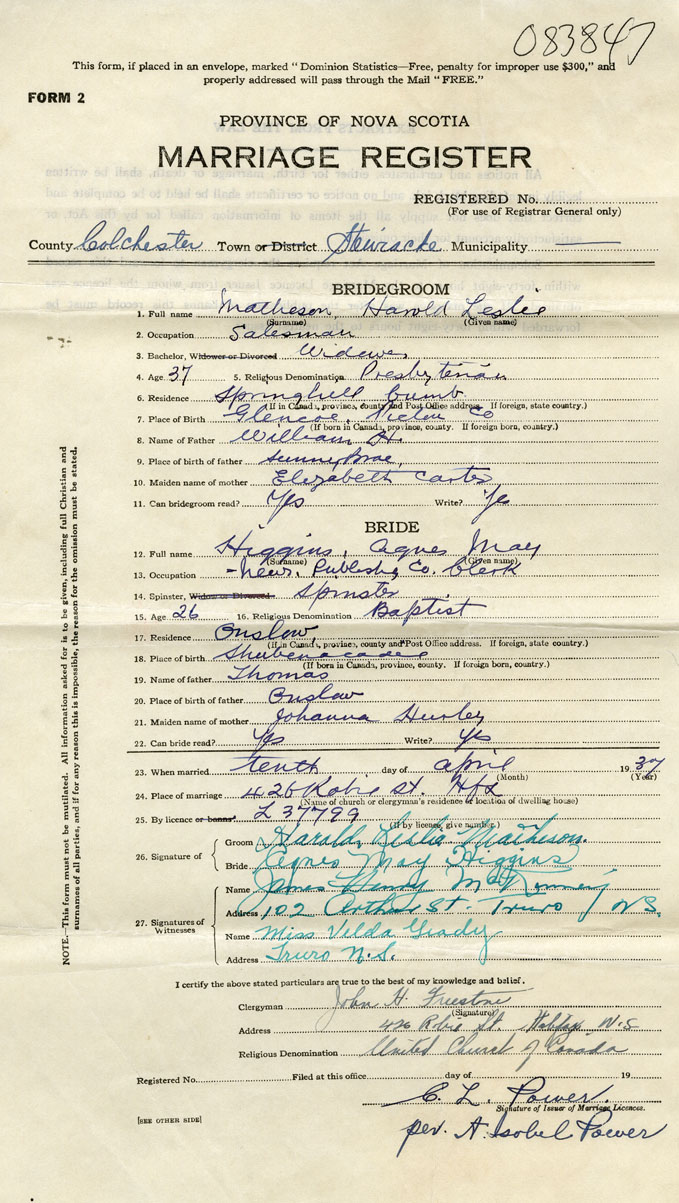 083847
This form, if placed in an envelope, marked "Dominion Statistics—Free, penalty for improper use $300," and
properly addressed will pass through the Mail "FREE."
FORM 2
PROVINCE OF NOVA SCOTIA
MARRIAGE REGISTER
REGISTERED No.
(For use of Registrar General only)
County Colchester Town or District Stewiacke Municipality —
BRIDEGROOM
1. Full name Matheson, Harold Leslie
(Surname) (Given name)
2. Occupation Salesman
3. Bachelor, Widower or Divorced Widower
4. Age 37 5. Religious Denomination Presbyterian
6. Residence Springhill Cumb
(If in Canada, province, county and Post Office address. If foreign, state country.)
7. Place of Birth Glencoe, Pictou Co
(If born in Canada, province, county. If foreign born, country.)
8. Name of Father William H.
9. Place of birth of father Sunny Brae,
10. Maiden name of mother Elizabeth Carter
11. Can bridegroom read? Yes Write? Yes
BRIDE
12. Full name Higgins, Agnes May
(Surname) (Given name)
13. Occupation News. Publishg Co. Clerk
14. Spinster, Widow or Divorced Spinster
15. Age 26 16. Religious Denomination Baptist
17. Residence Onslow,
(If in Canada, province, county and Post Office address. If foreign, state country.)
18. Place of birth Shubenacadie
(If born in Canada, province, county. If foreign born, country.)
19. Name of father Thomas
20. Place of birth of father Onslow
21. Maiden name of mother Johanna Hurley
22. Can bride read? Yes Write? Yes
23. When married tenth day of April 1937
(Month) (Year)
24. Place of marriage 426 Robie St. Hfx
(Name of church or clergyman's residence or location of dwelling house)
25. By licence or banns L 37799
(If by license, give number.)
26. Signature of
Groom Harold Leslie Matheson.
Bride Agnes May Higgins
27. Signatures of Witnesses
Name James Henry
Address 102 Arthur St. Truro N.S.
Name Miss Velda Grady
Address Truro N.S.
I certify the above stated particulars are true to the best of my knowledge and belief.
Clergyman John H. Freestone
(Signature)
Address 426 Robie St Halifax N.S
Religious Denomination United Church of Canada
Registered No. Filed at this office day of 19
C. L. Power.
Signature of Issuer of Marriage Licences.
per. A. Isobel Power
[SEE OTHER SIDE]
NOTE.—This form must not be mutilated. All information asked for is to be given, including full Christian and
surnames of all parties, and if for any reason this is impossible, the reason for the omission must be stated.